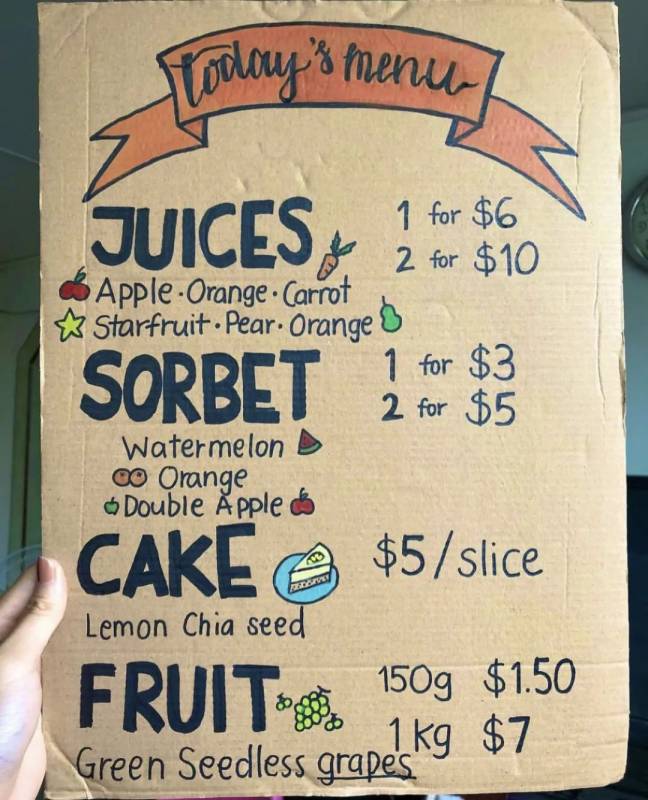 today's menu
JUICES 1 for $6
2 for $10
Apple·Orange·Carrot
Starfruit·Pear·Orange
SORBET 1 for $3
2 for $5
Watermelon
Orange
Double Apple
CAKE $5/slice
Lemon Chia seed
FRUIT 150g $1.50
1kg $7
Green Seedless grapes